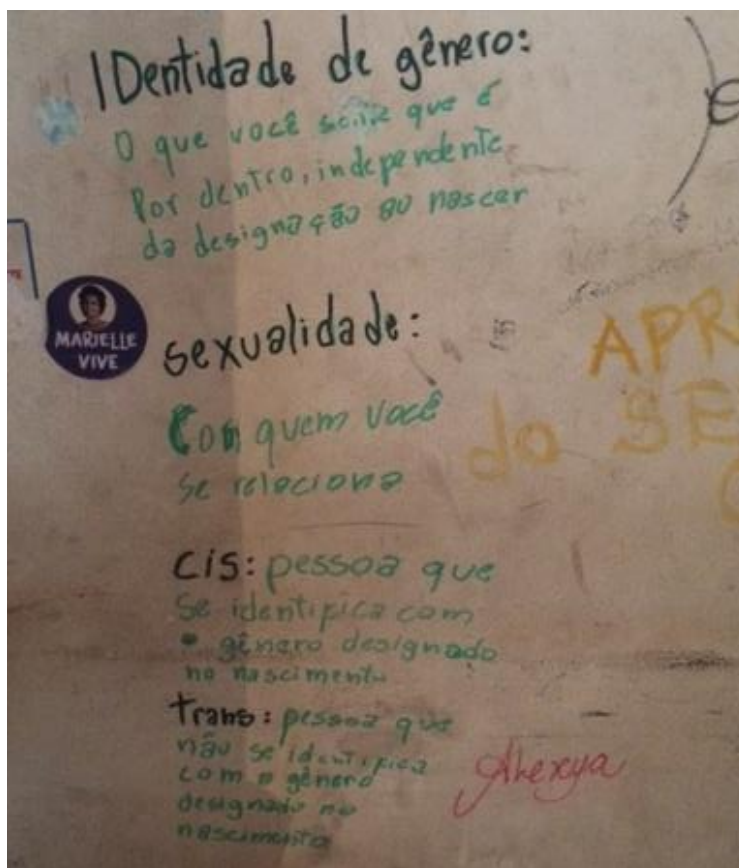 IDentidade de gênero:
O que você sente que é
Por dentro, independente
da designação ao nascer
MARIELLE
VIVE
sexualidade:
Com quem você
se relaciona
APR
do SE
cis: pessoa que
se identifica com
o gênero designado
no nascimento
trans: pessoa que
não se identifica
com o gênero
designado no
nascimento